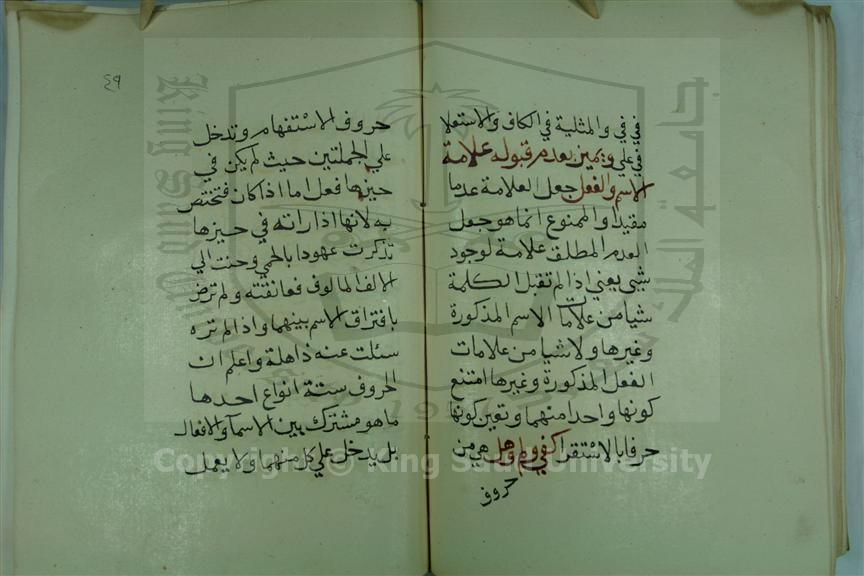 ففي في والمثلية في الكاف والاستعلا
في علي ويميز بعدم قبوله علامة
الاسم والفعل جعل العلامة عدما
مقيدا والممنوع انما هو جعل
العدم المطلق علامة لوجود
شي يعني اذا لم تقبل الكلمة
شيا من علامات الاسم المذكورة
وغيرها ولا شيا من علامات
الفعل المذكورة وغيرها امتنع
كونها واحدا منهما وتعين كونها
حرفا بالاستقرا كفي ولم وهل هي من
حروف
٤٩
حروف الاستفهام وتدخل
علي الجملتين حيث لم يكن في
حيزها فعل اما اذا كان فتختص
به لانها اذا راته في حيزها
تذكرت عهودا بالحمي وحنت الي
الالف المالوف فعانقته ولم ترض
بافتراق الاسم بينهما واذا لم تره
سئلت عنه ذاهلة واعلم ان
الحروف ستة انواع احدها
ما هو مشترك بين الاسمآ والافعال
بل يدخل علي كل منهما ولا يعمل
Copyright © King Saud University
جامعة الملك
King Saud
1957